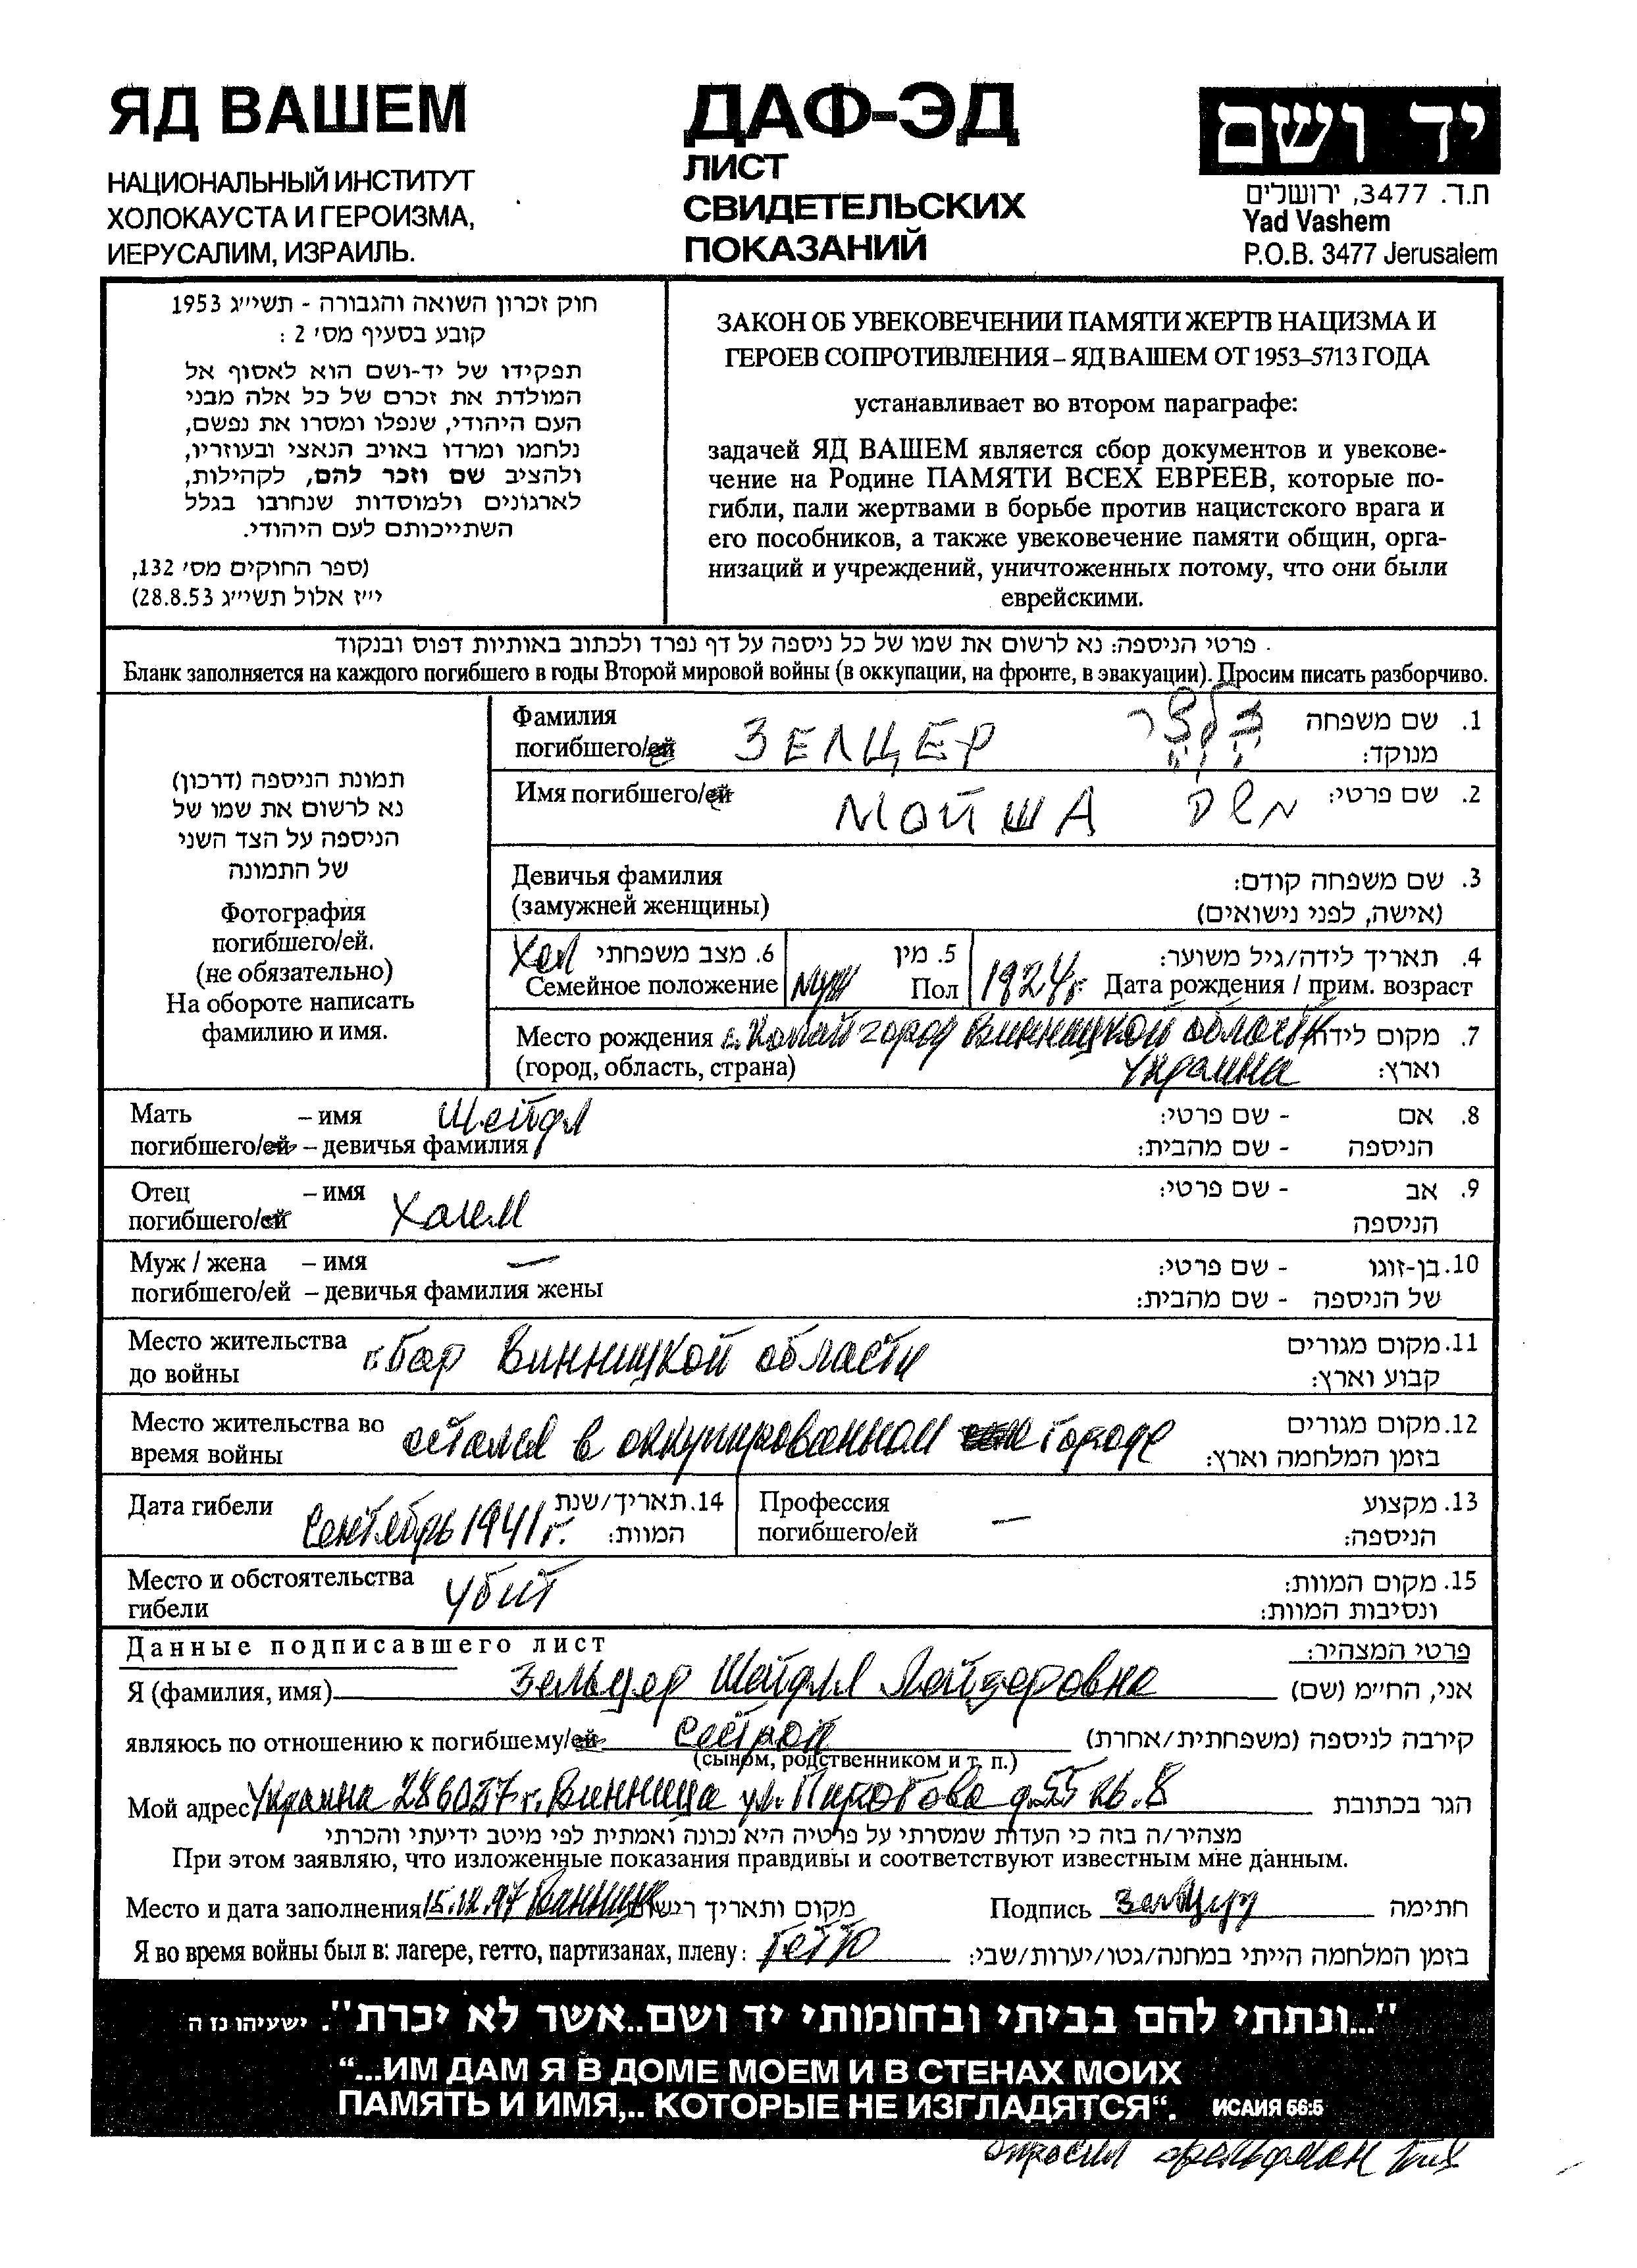 ЯД ВАШЕМ
НАЦИОНАЛЬНЫЙ ИНСТИТУТ
ХОЛОКАУСТА И ГЕРОИЗМА,
ИЕРУСАЛИМ, ИЗРАИЛЬ.
ДАФ-ЭД
ЛИСТ
СВИДЕТЕЛЬСКИХ
ПОКАЗАНИЙ
יד ושם
ת.ד. 3477, ירושלים
Yad Vashem
P.O.B. 3477 Jerusalem
חוק זכרון השואה והגבורה - תשי״ג 1953
קובע בסעיף מס׳ 2 :
תפקידו של יד-ושם הוא לאסוף אל
המולדת את זכרם של כל אלה מבני
העם היהודי, שנפלו ומסרו את נפשם,
נלחמו ומרדו באויב הנאצי ובעוזריו,
ולהציב שם וזכר להם, לקהילות,
לארגונים ולמוסדות שנחרבו בגלל
השתייכותם לעם היהודי.
(ספר החוקים מס׳ 132,
י״ז אלול תשי״ג 28.8.53)
ЗАКОН ОБ УВЕКОВЕЧЕНИИ ПАМЯТИ ЖЕРТВ НАЦИЗМА И
ГЕРОЕВ СОПРОТИВЛЕНИЯ – ЯД ВАШЕМ ОТ 1953–5713 ГОДА
устанавливает во втором параграфе:
задачей ЯД ВАШЕМ является сбор документов и увекове-
чение на Родине ПАМЯТИ ВСЕХ ЕВРЕЕВ, которые по-
гибли, пали жертвами в борьбе против нацистского врага и
его пособников, а также увековечение памяти общин, орга-
низаций и учреждений, уничтоженных потому, что они были
еврейскими.
פרטי הניספה: נא לרשום את שמו של כל ניספה על דף נפרד ולכתוב באותיות דפוס ובנקוד
Бланк заполняется на каждого погибшего в годы Второй мировой войны (в оккупации, на фронте, в эвакуации). Просим писать разборчиво.
תמונת הניספה (דרכון)
נא לרשום את שמו של
הניספה על הצד השני
של התמונה
Фотография
погибшего/ей.
(не обязательно)
На обороте написать
фамилию и имя.
Фамилия 1. שם משפחה
погибшего/ей ЗЕЛЦЕР זלצר מנוקד:
Имя погибшего/ей МОЙША משה 2. שם פרטי:
Девичья фамилия 3. שם משפחה קודם:
(замужней женщины) (אישה, לפני נישואים)
Хол 6. מצב משפחתי 5. מין 4. תאריך לידה/גיל משוער:
Семейное положение муж Пол 1924 г. Дата рождения / прим. возраст
Место рождения с. Копайгород Винницкой области 7. מקום לידה
(город, область, страна) Украина וארץ:
Мать – имя Шейдл 8. אם - שם פרטי:
погибшего/ей – девичья фамилия הניספה - שם מהבית:
Отец – имя Хаим 9. אב - שם פרטי:
погибшего/ей הניספה
Муж / жена – имя — 10. בן-זוגו - שם פרטי:
погибшего/ей – девичья фамилия жены של הניספה - שם מהבית:
Место жительства г. Бар Винницкой области 11. מקום מגורים
до войны קבוע וארץ:
Место жительства во остался в оккупированном городе 12. מקום מגורים
время войны בזמן המלחמה וארץ:
Дата гибели Сентябрь 1941 г. 14. תאריך/שנת המוות:
Профессия — 13. מקצוע
погибшего/ей הניספה:
Место и обстоятельства убит 15. מקום המוות:
гибели ונסיבות המוות:
Данные подписавшего лист פרטי המצהיר:
Я (фамилия, имя) Зельцер Шейдля Лейзеровна אני, החי״מ (שם)
являюсь по отношению к погибшему/ей сестрой קירבה לניספה (משפחתית/אחרת)
(сыном, родственником и т. п.)
Мой адрес Украина 286037 г. Винница ул. Пирогова д. 55 кв. 8 הגר בכתובת
מצהיר/ה בזה כי העדות שמסרתי על פרטיה היא נכונה ואמתית לפי מיטב ידיעתי והכרתי
При этом заявляю, что изложенные показания правдивы и соответствуют известным мне данным.
Место и дата заполнения 15.12.97 Винница מקום ותאריך רישום Подпись Зельцер חתימה
Я во время войны был в: лагере, гетто, партизанах, плену: Гетто בזמן המלחמה הייתי במחנה/גטו/יערות/שבי:
"...ונתתי להם בביתי ובחומותי יד ושם..אשר לא יכרת". ישעיהו נז ה
“...ИМ ДАМ Я В ДОМЕ МОЕМ И В СТЕНАХ МОИХ
ПАМЯТЬ И ИМЯ,.. КОТОРЫЕ НЕ ИЗГЛАДЯТСЯ“. ИСАИЯ 56:5
опросил